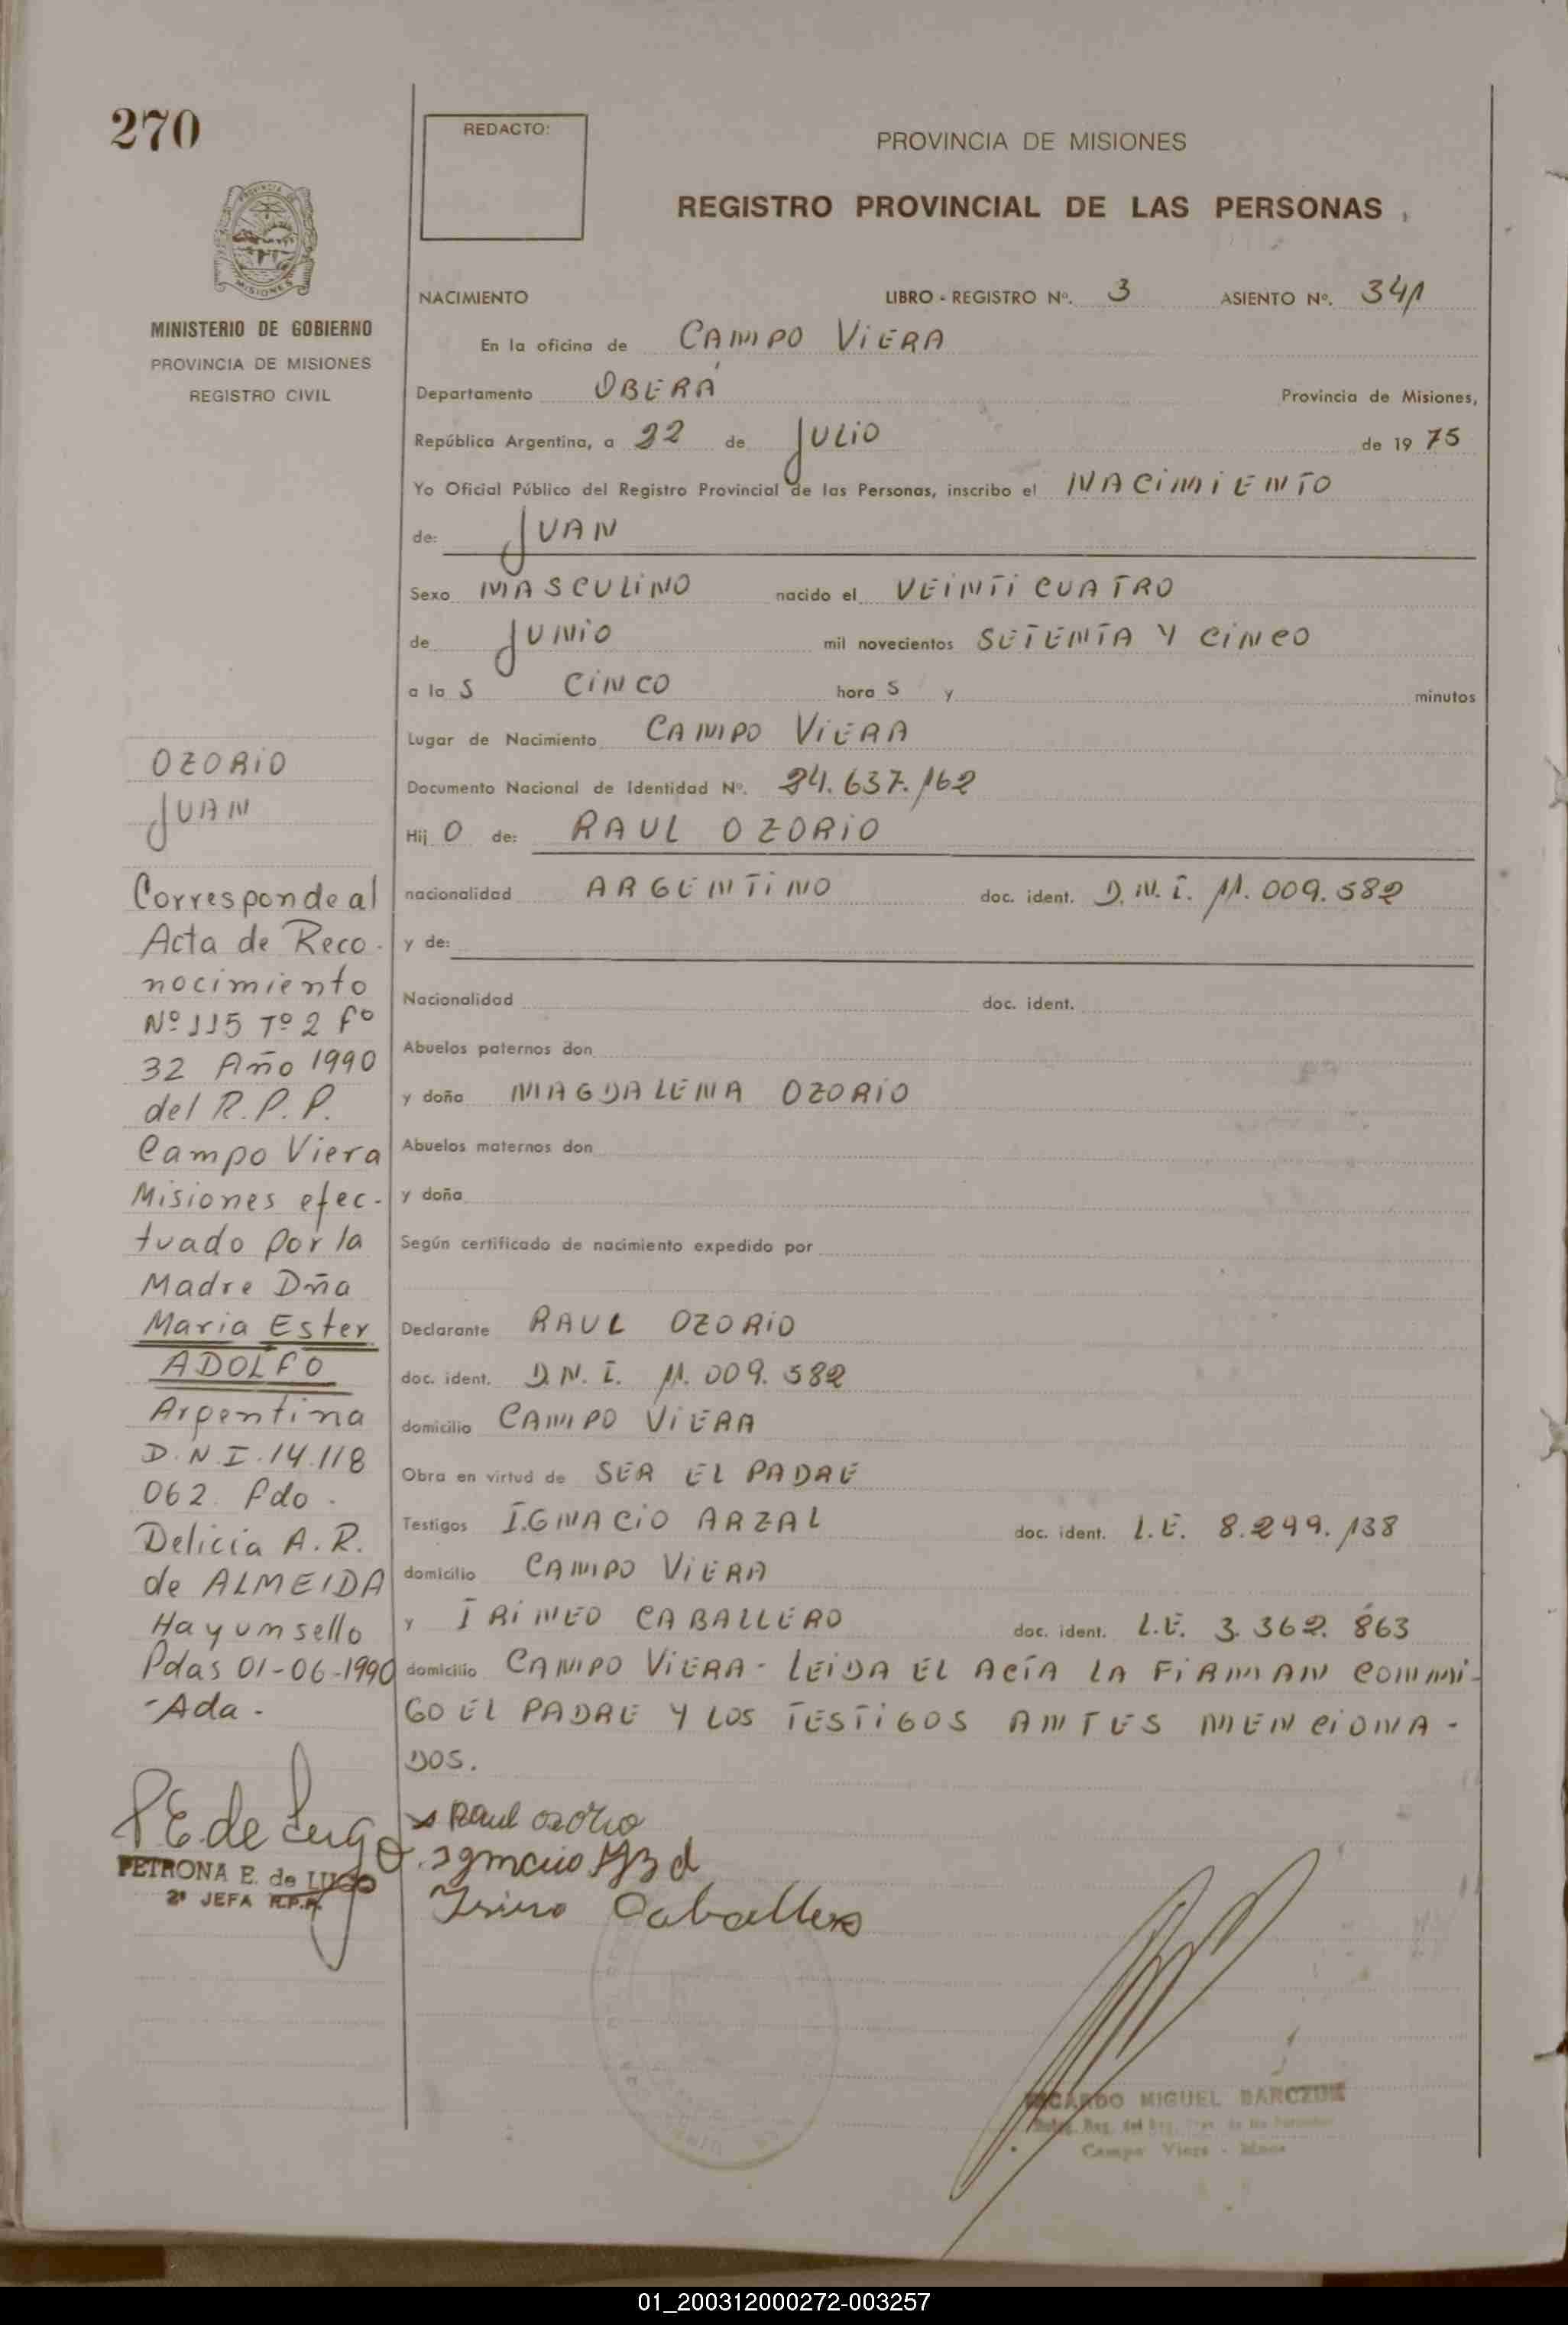 270
REDACTO:
PROVINCIA DE MISIONES
REGISTRO PROVINCIAL DE LAS PERSONAS
MISIONES
MINISTERIO DE GOBIERNO
PROVINCIA DE MISIONES
REGISTRO CIVIL
NACIMIENTO LIBRO - REGISTRO Nº. 3 ASIENTO Nº. 341
En la oficina de CAMPO ViERA
Departamento OBERÁ Provincia de Misiones,
República Argentina, a 22 de JULiO de 19 75
Yo Oficial Público del Registro Provincial de las Personas, inscribo el NACiMiENTO
de: JUAN
Sexo MASCULiNO nacido el VEiNTi CUATRO
de JUNiO mil novecientos SETENTA Y CiNCO
a la S CiNCO hora S y minutos
Lugar de Nacimiento CAMPO ViERA
Documento Nacional de Identidad Nº. 24.637.162
Hij O de: RAUL OZORiO
nacionalidad ARGENTiNO doc. ident. D.N.I. 11.009.582
y de:
Nacionalidad doc. ident.
Abuelos paternos don
y doña MAGDALENA OZORiO
Abuelos maternos don
y doña
Según certificado de nacimiento expedido por
Declarante RAUL OZORiO
doc. ident. D.N.I. 11.009.582
domicilio CAMPO ViERA
Obra en virtud de SER EL PADRE
Testigos IGNACiO ARZAL doc. ident. L.E. 8.299.138
domicilio CAMPO ViERA
y IRiNEO CABALLERO doc. ident. L.E. 3.362.863
domicilio CAMPO ViERA - LEiDA EL ACTA LA FiRMAN CONMi-
GO EL PADRE Y LOS TESTiGOS ANTES MENCiONA-
DOS.
OZORiO
JUAN
Corresponde al
Acta de Reco-
nocimiento
Nº 115 Tº 2 Fº
32 Año 1990
del R.P.P.
Campo Viera
Misiones efec-
tuado por la
Madre Dña
Maria Ester
ADOLFO
Argentina
D.N.I. 14.118
062. Fdo.
Delicia A.R.
de ALMEIDA
Hay un sello
Pdas 01-06-1990
-Ada-
P E de Lugo
PETRONA E. de LUGO
2ª JEFA R.P.P.
Raul ozorio
Irineo Caballero
RICARDO MIGUEL BARCZUK
Campo Viera - Mnes
01_200312000272-003257